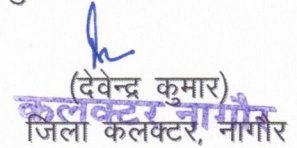 (देवेन्द्र कुमार)
कलक्टर नागौर
जिला कलक्टर, नागौर